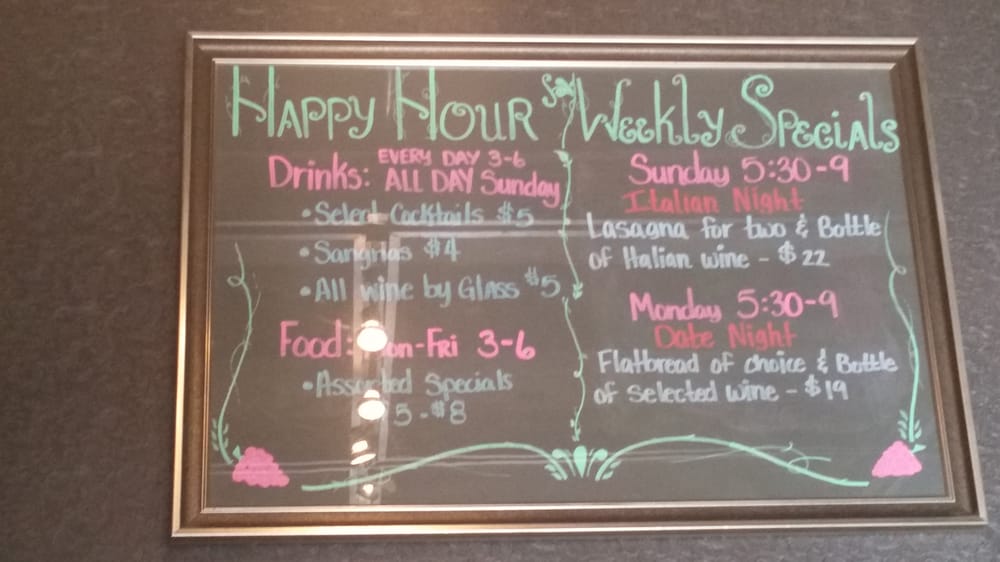 Happy Hour
Drinks: EVERY DAY 3-6
ALL DAY Sunday
• Select Cocktails $5
• Sangrias $4
• All wine by Glass $5
Food: Mon-Fri 3-6
• Assorted Specials
5 - $8
Weekly Specials
Sunday 5:30-9
Italian Night
Lasagna for two & Bottle
of Italian wine - $22
Monday 5:30-9
Date Night
Flatbread of choice & Bottle
of selected wine - $19